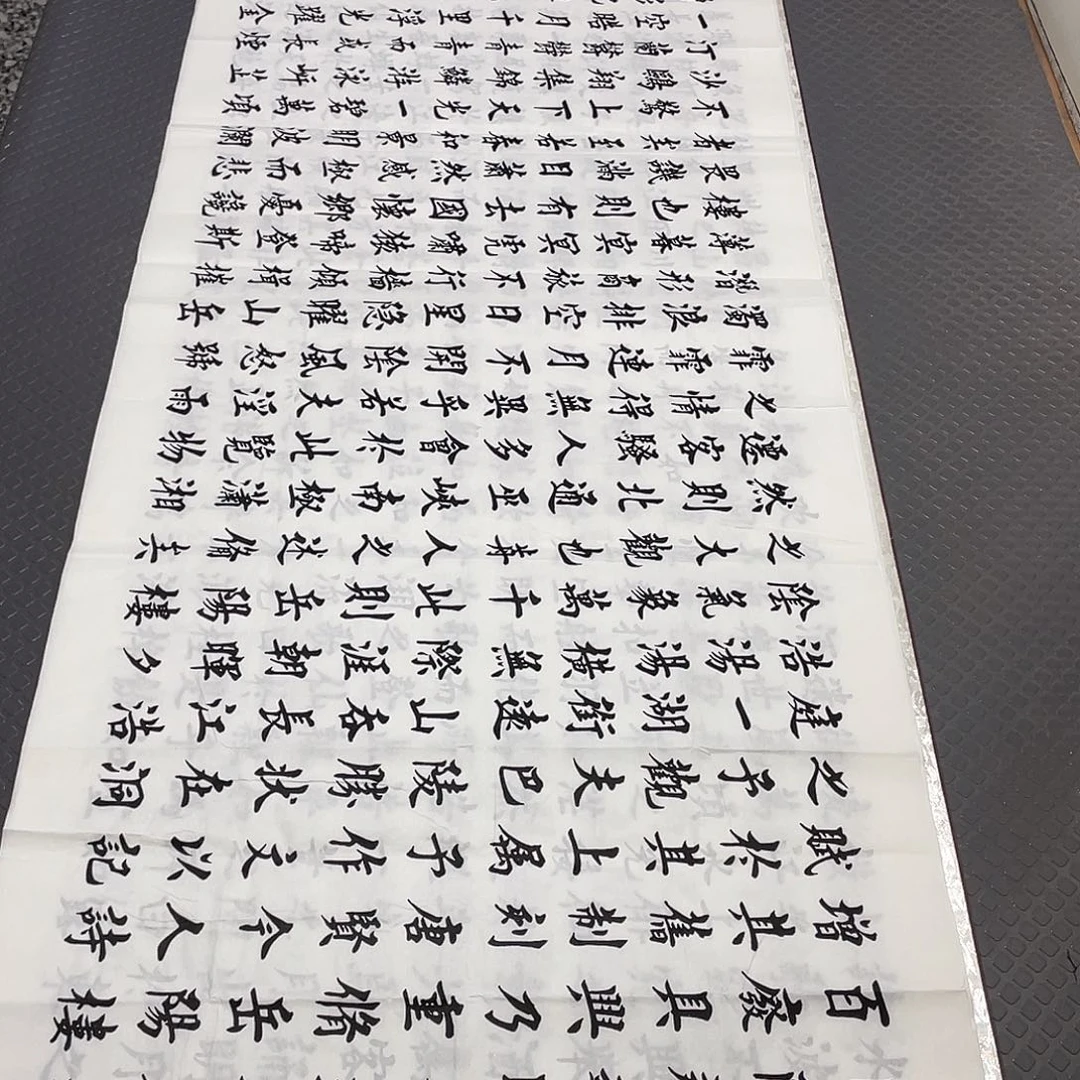 百廢具興乃重脩岳陽樓
增其舊制刻唐賢今人詩
賦於其上属予作文以記
之予觀夫巴陵勝狀在洞
庭一湖銜遠山吞長江浩
浩湯湯橫無際涯朝暉夕
陰氣象萬千此則岳陽樓
之大觀也歬人之述脩矣
然則北通巫峽南極瀟湘
遷客騷人多會於此覽物
之情得無異乎若夫淫雨
霏霏連月不開陰風怒號
濁浪排空日星隐曜山岳
潛形商旅不行檣傾楫摧
薄暮冥冥虎嘯猿啼登斯
樓也則有去國懷鄉憂讒
畏譏滿目蕭然感極而悲
者矣至若春和景明波瀾
不驚上下天光一碧萬頃
沙鷗翔集錦鱗游泳岸芷
汀蘭鬱鬱青青而或長煙
一空皓月千里浮光躍金